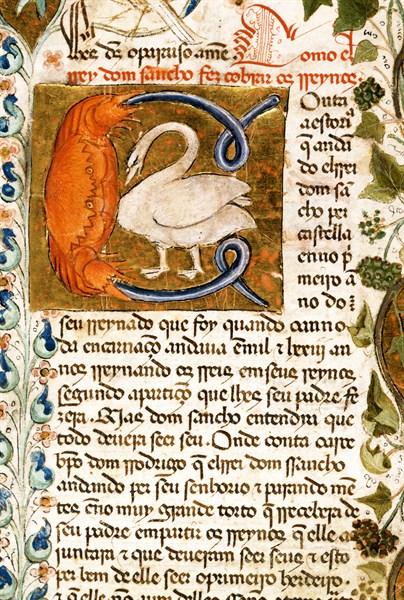 lhe d̃s oparaiso amẽ. Como el
rey dom sancho fez cobrar os rreynos.
Conta
a estoria
q̃ andã
do elrrei
dom sã
cho per
castella
enno p̃
meiro ã
no do
seu rreynado que foy quando ea nno
da encarnaçõ andaua ẽ mil ⁊ lxiii an
nos rreynando os rreis em seus reynos
segundo apartiçõ que lhes seu padre fe
zera. Mas dom sancho entendia que
todo deuera seer seu. Onde conta o arce
bp̃o dom rodrigo q̃ elrrei dom ssancho
andando per seu senhorio ⁊ parando mẽ
tes ẽno muy grande torto q̃ recebera de
seu padre em partir os rreynos q̃ elle a
juntara ⁊ que deueram seer seus ⁊ esto
per bem de elle seer o primeiro herdeiro.
⁊ que elle nõ